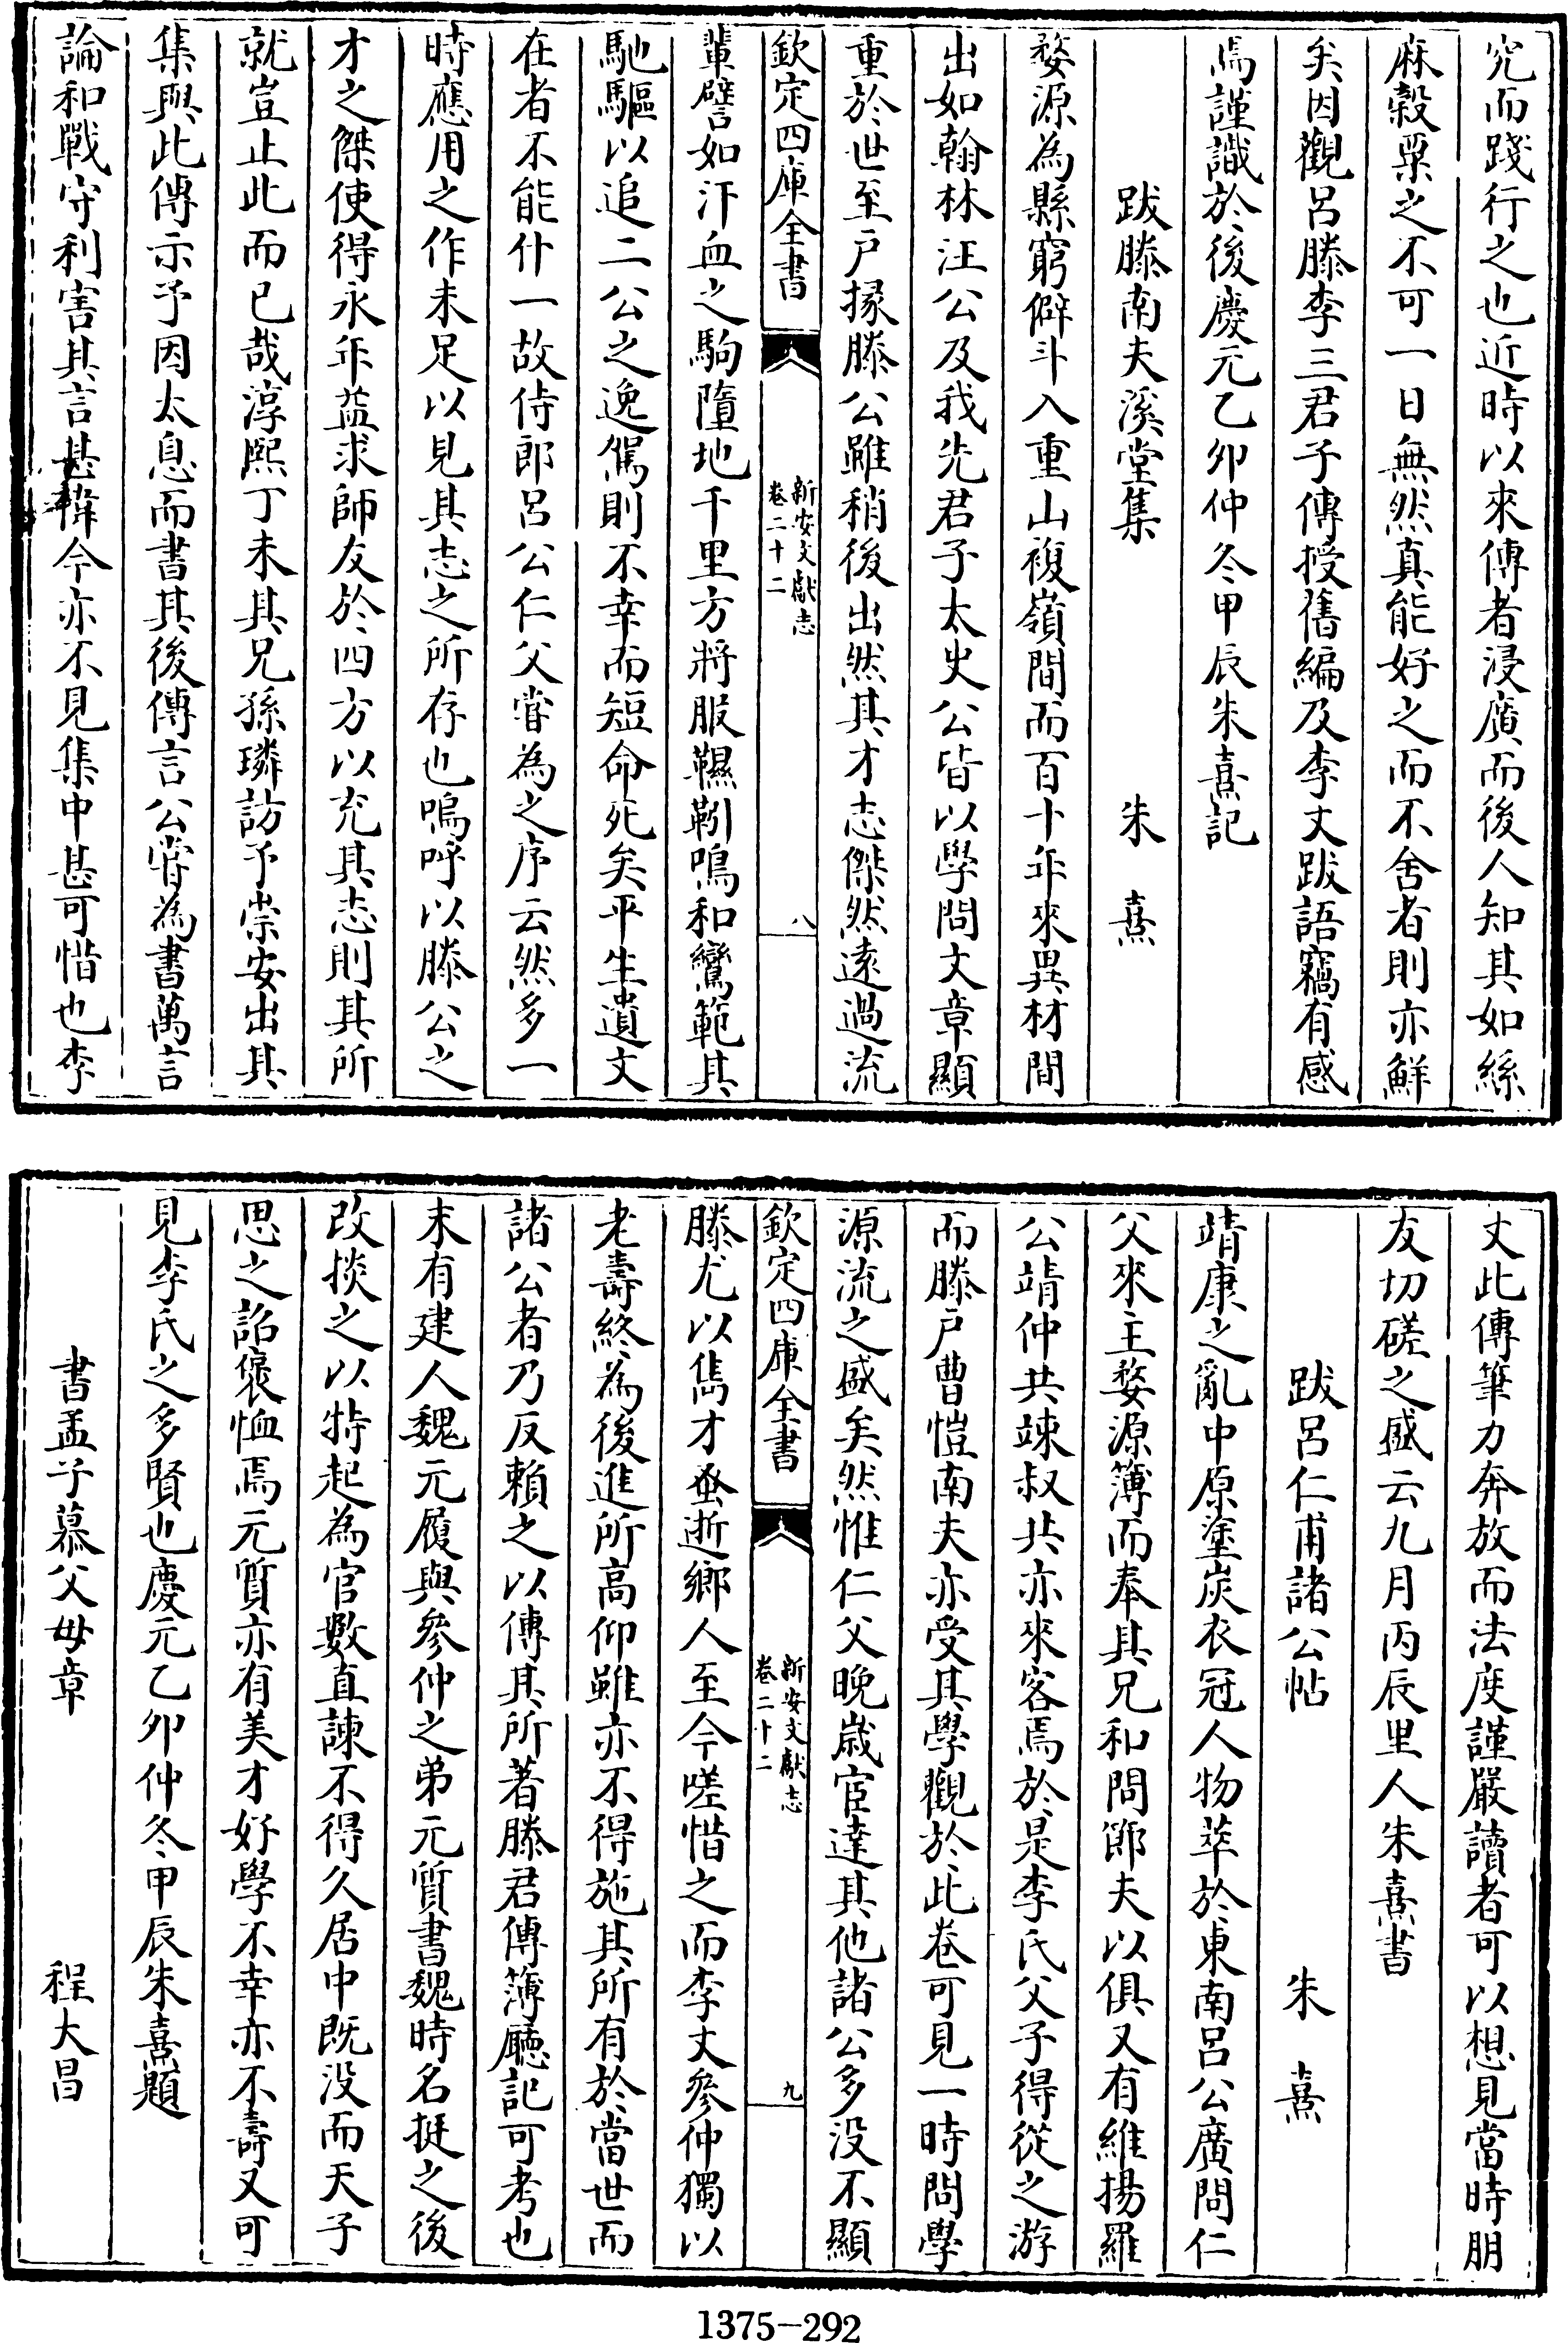 究而踐行之也近時以來傳者浸廣而後人知其如絲
麻穀粟之不可一日無然真能好之而不舍者則亦鮮
矣因觀呂滕李三君子傳授舊編及李丈跋語竊有感
焉謹識於後慶元乙卯仲冬甲辰朱熹記
跋滕南夫溪堂集　朱熹
婺源為縣窮僻斗入重山複嶺間而百十年來異材間
出如翰林汪公及我先君子太史公皆以學問文章顯
重於世至戶掾滕公雖稍後出然其才志傑然遠過流
欽定四庫全書
新安文獻志
卷二十二
八
輩譬如汗血之駒墮地千里方將服韅靷鳴和鸞範其
馳驅以追二公之逸駕則不幸而短命死矣平生遺文
在者不能什一故侍郎呂公仁父嘗為之序云然多一
時應用之作未足以見其志之所存也嗚呼以滕公之
才之傑使得永年益求師友於四方以充其志則其所
就豈止此而已哉淳熙丁未其兄孫璘訪予崇安出其
集與此傳示予因太息而書其後傳言公嘗為書萬言
論和戰守利害其言甚偉今亦不見集中甚可惜也李
丈此傳筆力奔放而法度謹嚴讀者可以想見當時朋
友切磋之盛云九月丙辰里人朱熹書
跋呂仁甫諸公帖　朱熹
靖康之亂中原塗炭衣冠人物萃於東南呂公廣問仁
父來主婺源簿而奉其兄和問節夫以俱又有維揚羅
公靖仲共竦叔共亦來客焉於是李氏父子得從之游
而滕戶曹愷南夫亦受其學觀於此卷可見一時問學
源流之盛矣然惟仁父晚歲宦達其他諸公多没不顯
欽定四庫全書
新安文獻志
卷二十二
九
滕尤以雋才蚤逝鄉人至今嗟惜之而李丈參仲獨以
老壽終為後進所高仰雖亦不得施其所有於當世而
諸公者乃反賴之以傳其所著滕君傳薄廳記可考也
末有建人魏元履與參仲之弟元質書魏時名挺之後
改掞之以特起為官數直諫不得久居中既没而天子
思之詔褒恤焉元質亦有美才好學不幸亦不壽又可
見李氏之多賢也慶元乙卯仲冬甲辰朱熹題
書孟子慕父母章　程大昌
1375-292